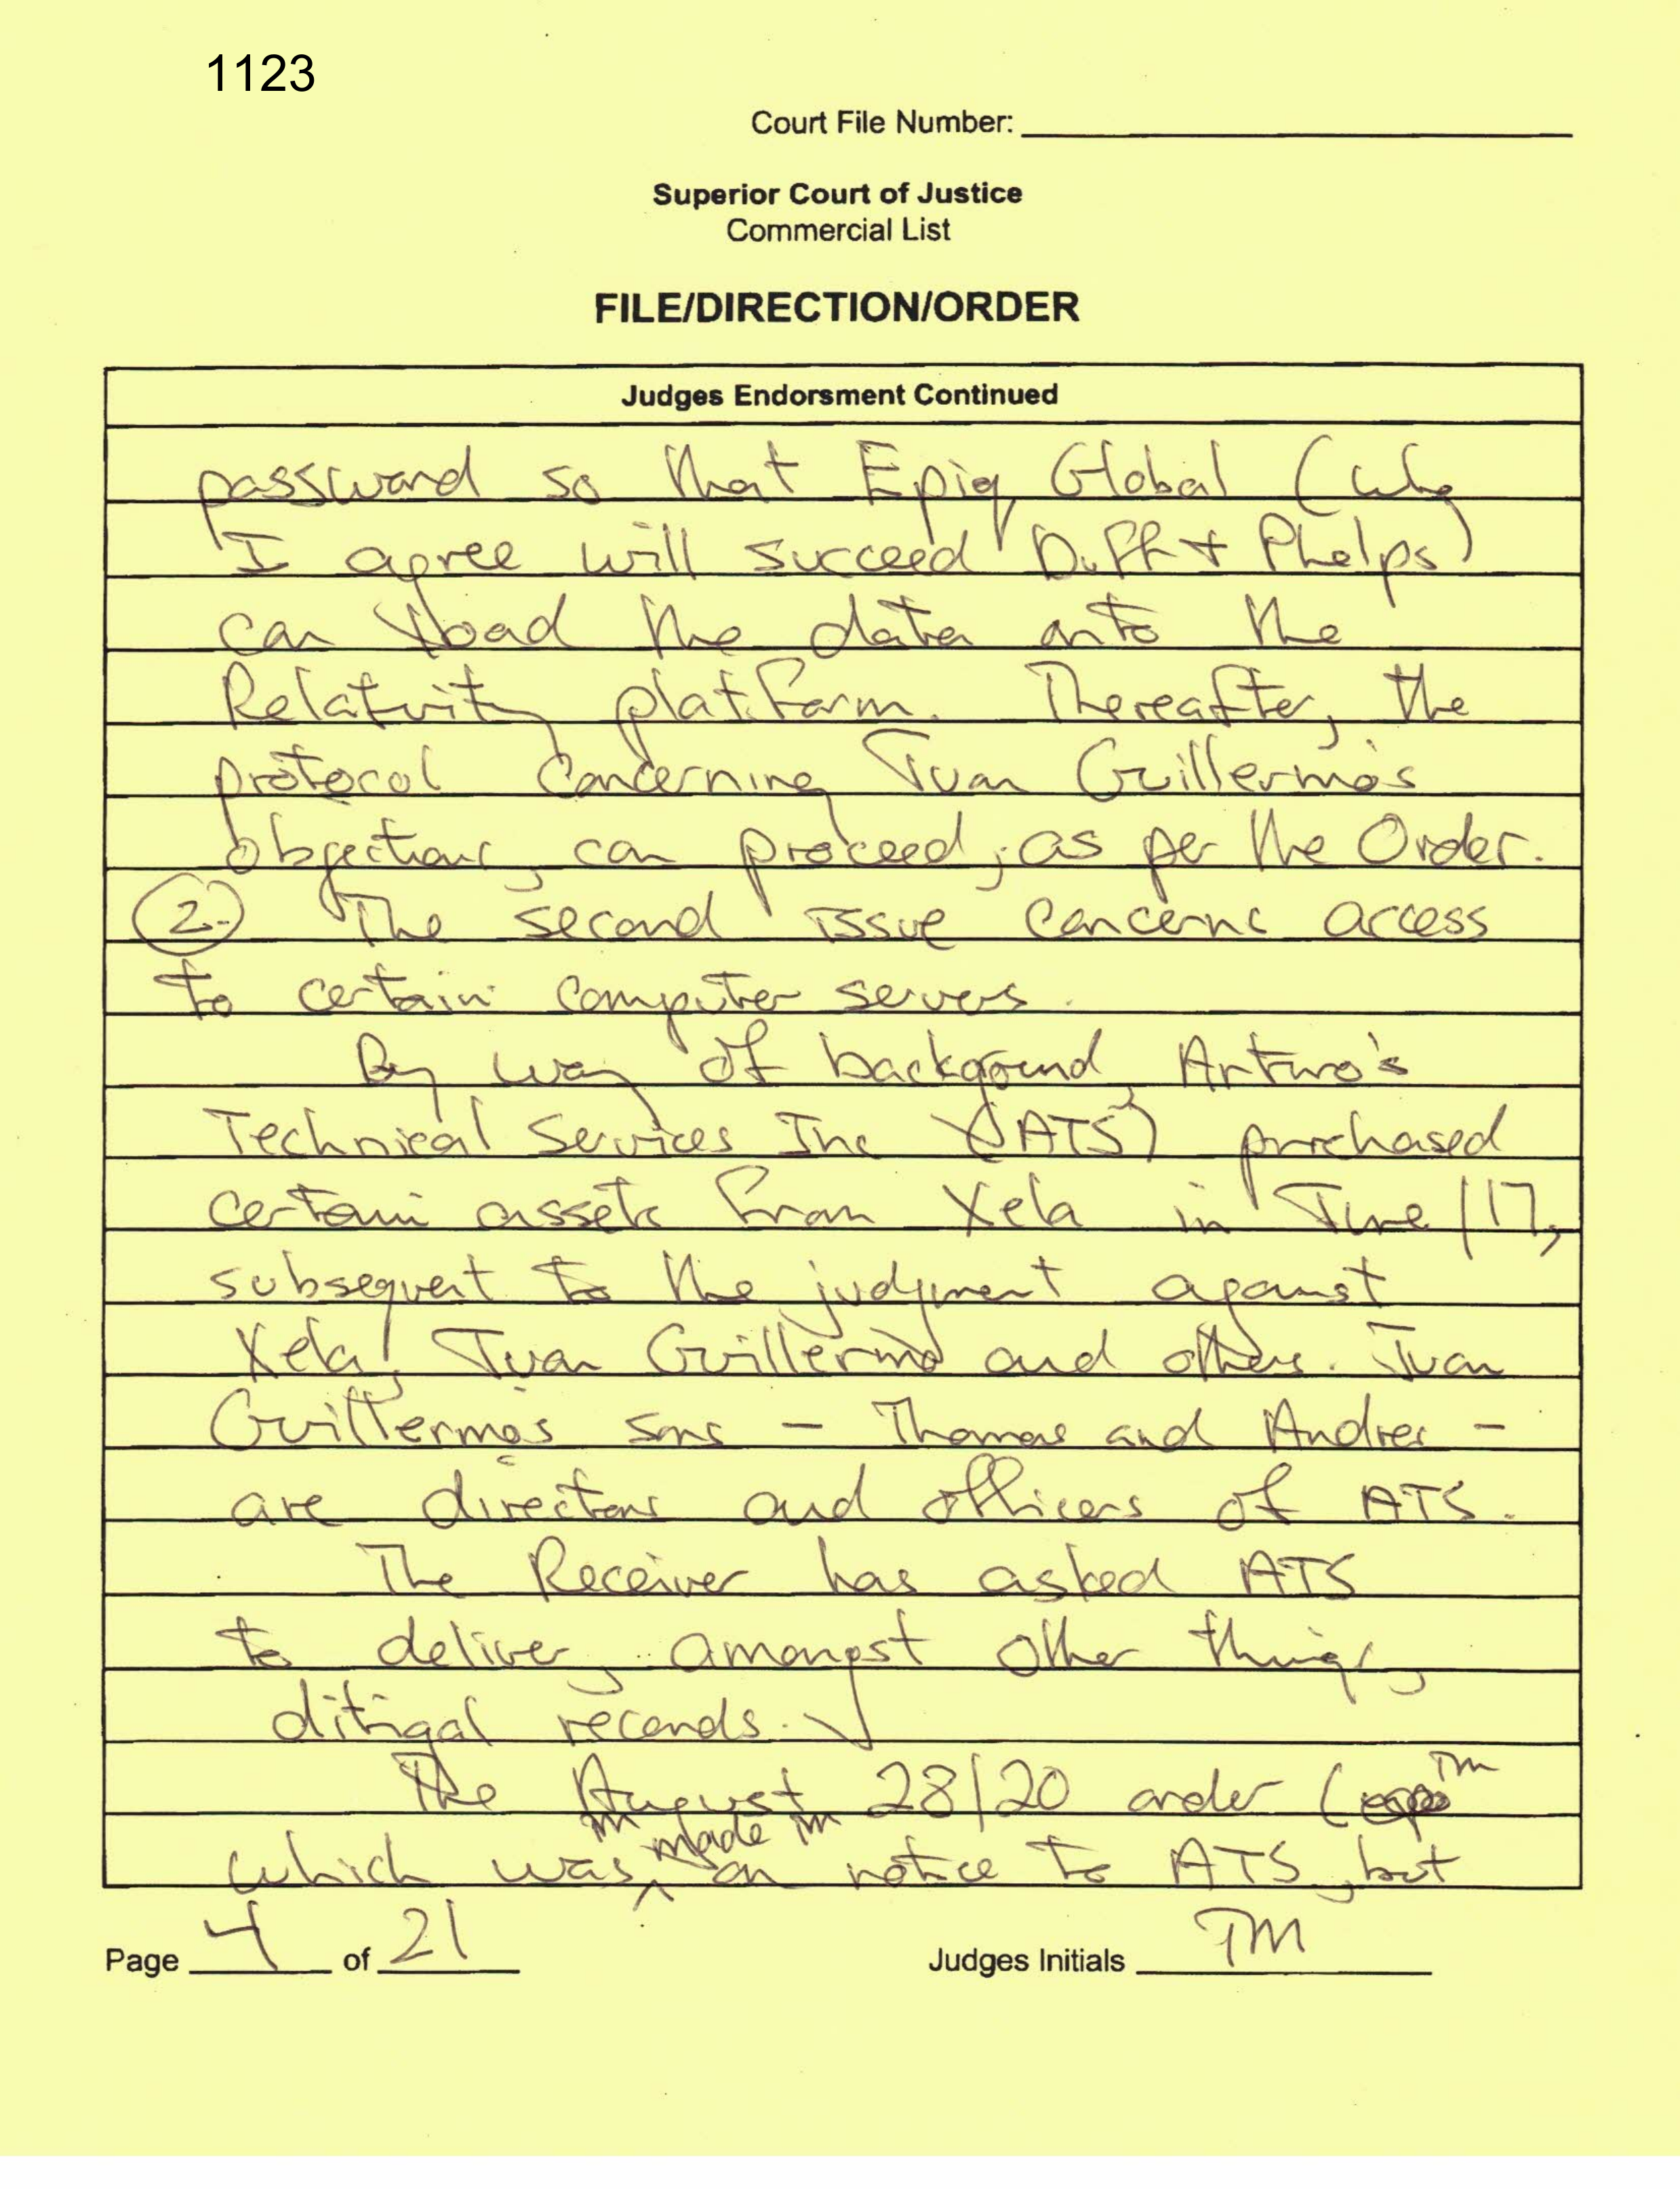 1123
Court File Number:
Superior Court of Justice
Commercial List
FILE/DIRECTION/ORDER
Judges Endorsment Continued
password so that Epiq Global (who
I agree will succeed Duff + Phelps)
can load the data onto the
Relativity platform. Thereafter, the
protocol concerning Juan Guillermo's
objections, can proceed, as per the Order.
2. The second issue concerns access
to certain computer servers.
By way of background, Arturo's
Technical Services Inc (ATS) purchased
certain assets from Xela in June/17,
subsequent to the judgment against
Xela, Juan Guillermo and others. Juan
Guillermo's sons - Thomas and Andres -
are directors and officers of ATS.
The Receiver has asked ATS
to deliver, amongst other things,
ditigal records.
The August 28/20 order ( TM
TM made TM
which was on notice to ATS, but
Page 4 of 21
Judges Initials TM